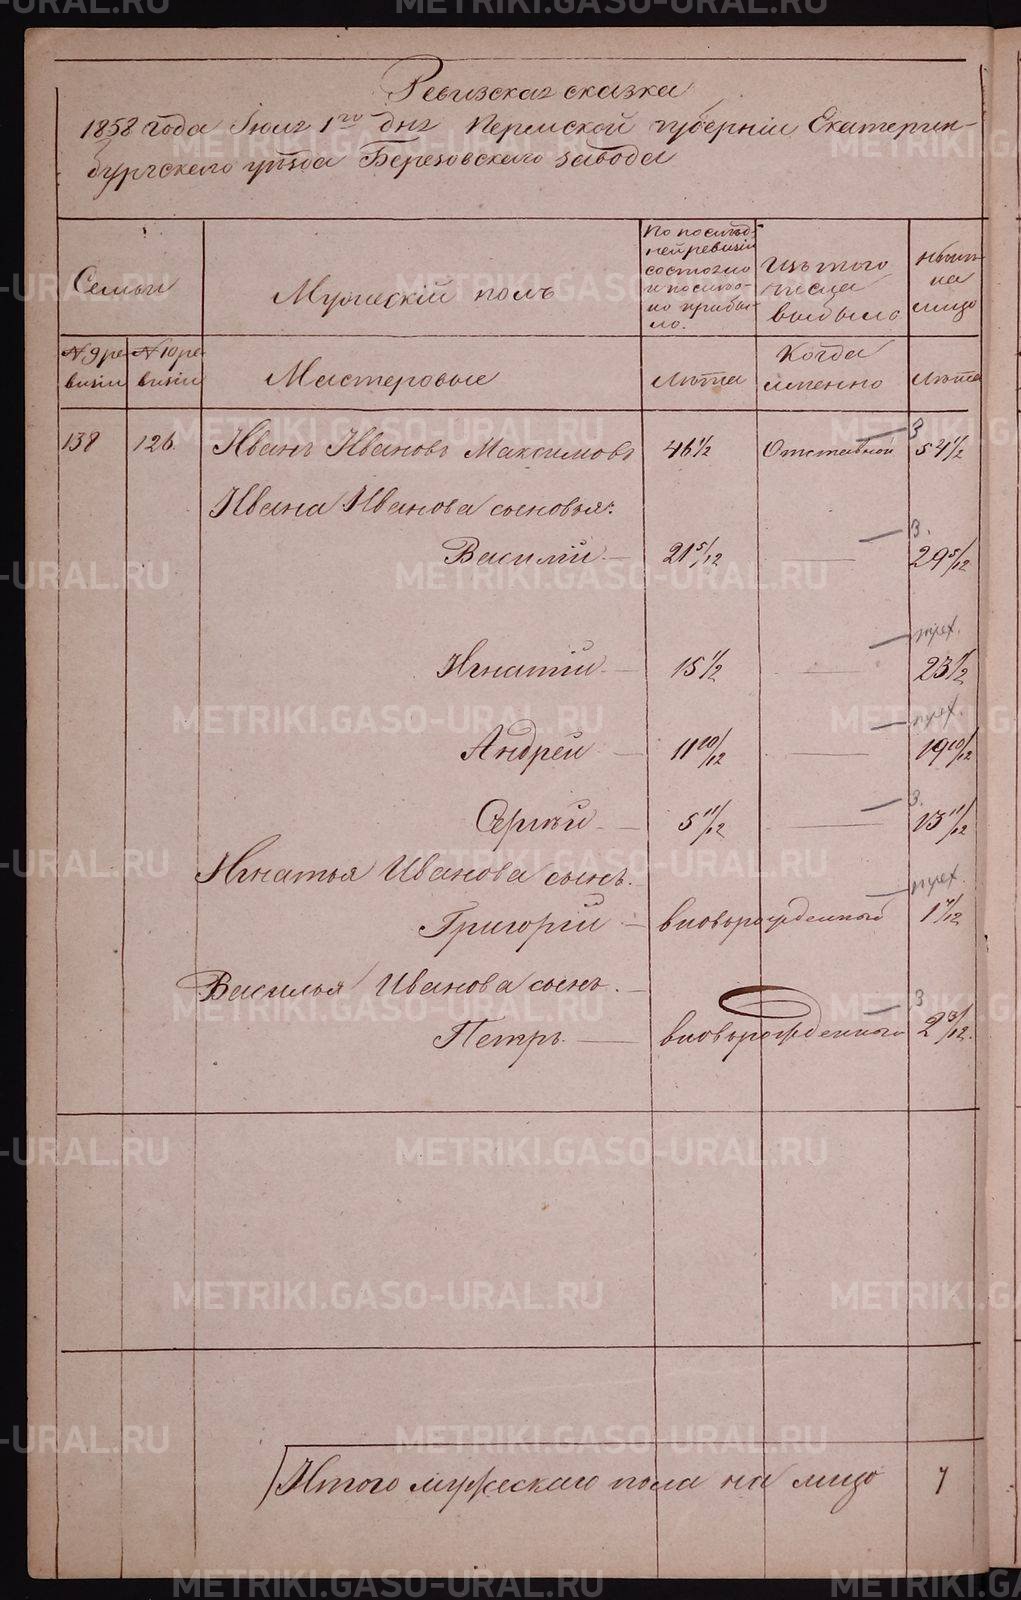 Ревизская сказка
1858 года Iюля 1го дня Пермской губернiи Екатерин-
бургского уѣзда Березовского завода
Семьи
Мужескiй полъ
По послѣд-
ней ревизiи
состояло
и послѣ то-
го прибы-
ло.
Изъ того
числа
выбыло
Нынѣ
на
лицо
№ 9 ре-
визiи
№ 10 ре-
визiи
Мастеровые
Лѣта
Когда
именно
Лѣта
138 126. Иванъ Ивановъ Максимовъ 46 1/2 Отставной 54 1/2
З
Ивана Иванова сыновья:
З.
Василiй 21 5/12 29 5/12
прех.
Игнатiй 15 1/2 23 1/2
прех.
Андрей 11 10/12 19 10/12
З.
Сергѣй 5 11/12 13 11/12
Игнатья Иванова сынъ.
прех.
Григорiй вновьрожденный 1 /12
Василья Иванова сынъ.
З
Петръ. вновьрожденного 2 3/12.
Итого мужескаго пола на лицо 7
METRIKI.GASO-URAL.RU